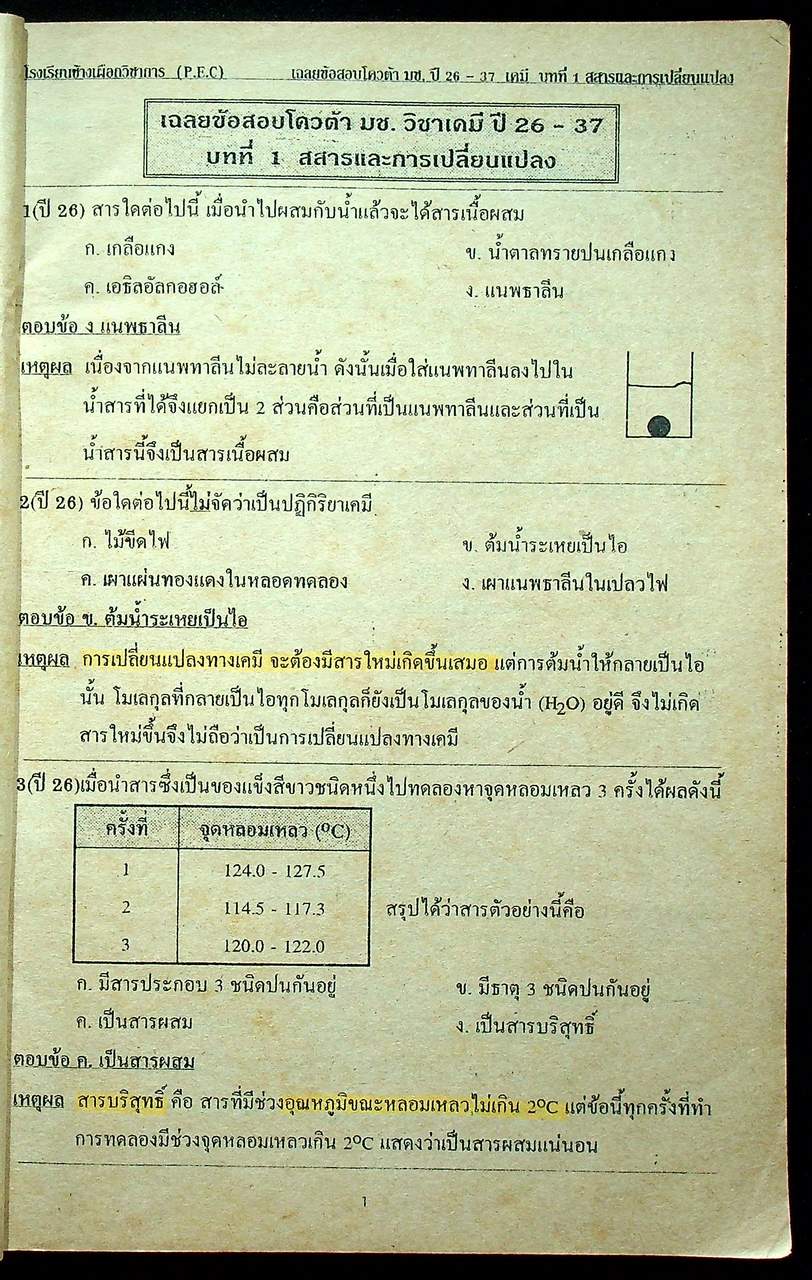 โรงเรียนช้างเผือกวิชาการ (P.E.C) เฉลยข้อสอบโควต้า มช. ปี 26 - 37 เคมี บทที่ 1 สสารและการเปลี่ยนแปลง
เฉลยข้อสอบโควต้า มช. วิชาเคมี ปี 26 - 37
บทที่ 1 สสารและการเปลี่ยนแปลง
1(ปี 26) สารใดต่อไปนี้ เมื่อนำไปผสมกับน้ำแล้วจะได้สารเนื้อผสม
ก. เกลือแกง ข. น้ำตาลทรายปนเกลือแกง
ค. เอธิลอัลกอฮอล์ ง. แนพธาลีน
ตอบข้อ ง แนพธาลีน
เหตุผล เนื่องจากแนพทาลีนไม่ละลายน้ำ ดังนั้นเมื่อใส่แนพทาลีนลงไปใน
น้ำสารที่ได้จึงแยกเป็น 2 ส่วนคือส่วนที่เป็นแนพทาลีนและส่วนที่เป็น
น้ำสารนี้จึงเป็นสารเนื้อผสม
2(ปี 26) ข้อใดต่อไปนี้ไม่จัดว่าเป็นปฏิกิริยาเคมี
ก. ไม้ขีดไฟ ข. ต้มน้ำระเหยเป็นไอ
ค. เผาแผ่นทองแดงในหลอดทดลอง ง. เผาแนพธาลีนในเปลวไฟ
ตอบข้อ ข. ต้มน้ำระเหยเป็นไอ
เหตุผล การเปลี่ยนแปลงทางเคมี จะต้องมีสารใหม่เกิดขึ้นเสมอ แต่การต้มน้ำให้กลายเป็นไอ
นั้น โมเลกุลที่กลายเป็นไอทุกโมเลกุลก็ยังเป็นโมเลกุลของน้ำ (H₂O) อยู่ดี จึงไม่เกิด
สารใหม่ขึ้นจึงไม่ถือว่าเป็นการเปลี่ยนแปลงทางเคมี
3(ปี 26)เมื่อนำสารซึ่งเป็นของแข็งสีขาวชนิดหนึ่งไปทดลองหาจุดหลอมเหลว 3 ครั้งได้ผลดังนี้
ครั้งที่ จุดหลอมเหลว (ºC)
1 124.0 - 127.5
2 114.5 - 117.3 สรุปได้ว่าสารตัวอย่างนี้คือ
3 120.0 - 122.0
ก. มีสารประกอบ 3 ชนิดปนกันอยู่ ข. มีธาตุ 3 ชนิดปนกันอยู่
ค. เป็นสารผสม ง. เป็นสารบริสุทธิ์
ตอบข้อ ค. เป็นสารผสม
เหตุผล สารบริสุทธิ์ คือ สารที่มีช่วงอุณหภูมิขณะหลอมเหลวไม่เกิน 2ºC แต่ข้อนี้ทุกครั้งที่ทำ
การทดลองมีช่วงจุดหลอมเหลวเกิน 2ºC แสดงว่าเป็นสารผสมแน่นอน
1